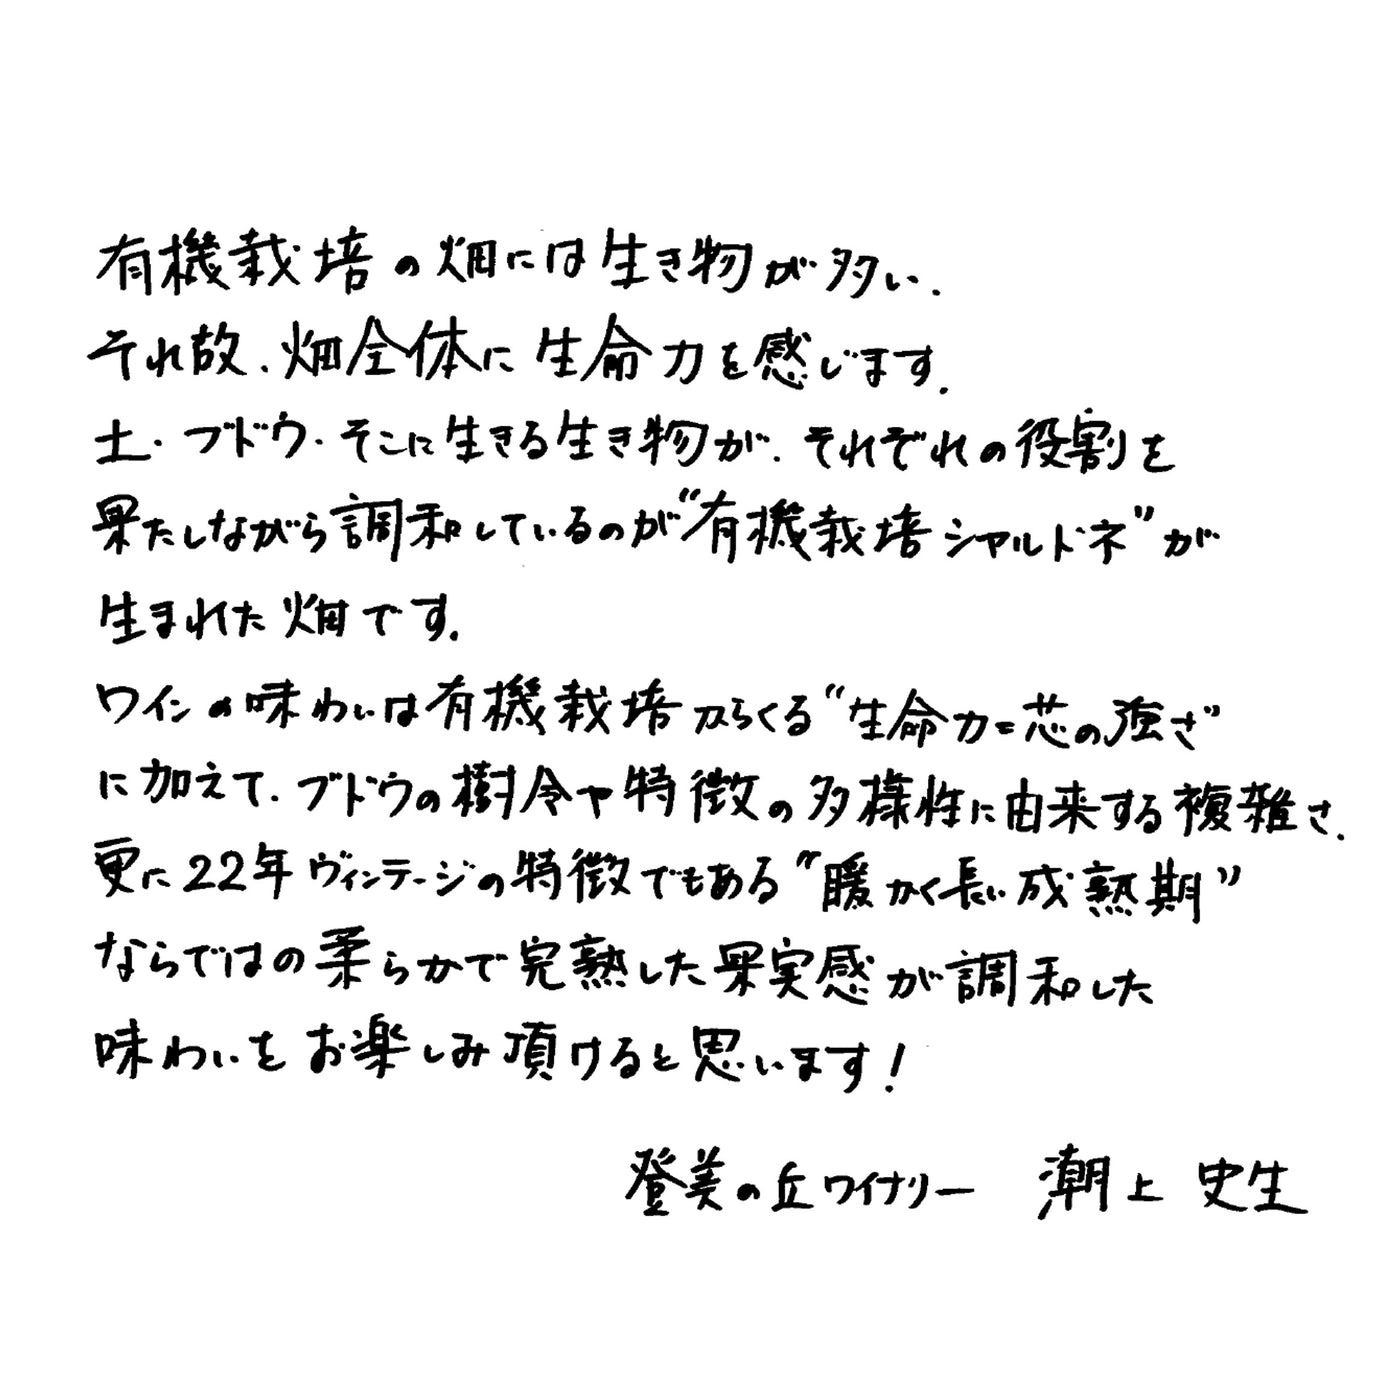 有機栽培の畑には生き物が多い.
それ故、畑全体に生命力を感じます.
土・ブドウ・そこに生きる生き物が、それぞれの役割を
果たしながら調和しているのが“有機栽培シャルドネ”が
生まれた畑です.
ワインの味わいは有機栽培からくる“生命力=芯の強さ”
に加えて、ブドウの樹令や特徴の多様性に由来する複雑さ、
更に22年ヴィンテージの特徴でもある“暖かく長い成熟期”
ならではの柔らかで完熟した果実感が調和した
味わいをお楽しみ頂けると思います!
登美の丘ワイナリー 潮上 史生